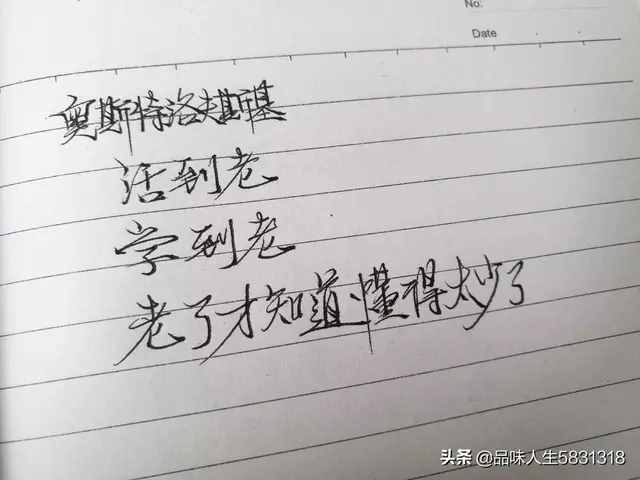 No:
Date
奥斯特洛夫斯基
活到老
学到老
老了才知道懂得太少了
头条 @品味人生5831318